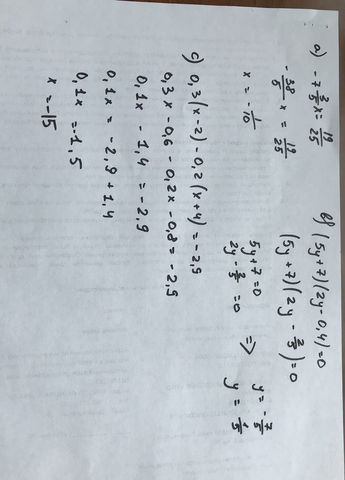 a) -7 3/5 x = 19/25
-38/5 x = 19/25
x = -1/10
b) (5y+7)(2y-0,4)=0
(5y+7)(2y-2/5)=0
5y+7=0
2y-2/5=0
=> y=-7/5
y=1/5
c) 0,3(x-2)-0,2(x+4)=-2,9
0,3x-0,6-0,2x-0,8=-2,9
0,1x-1,4=-2,9
0,1x=-2,9+1,4
0,1x=-1,5
x=-15